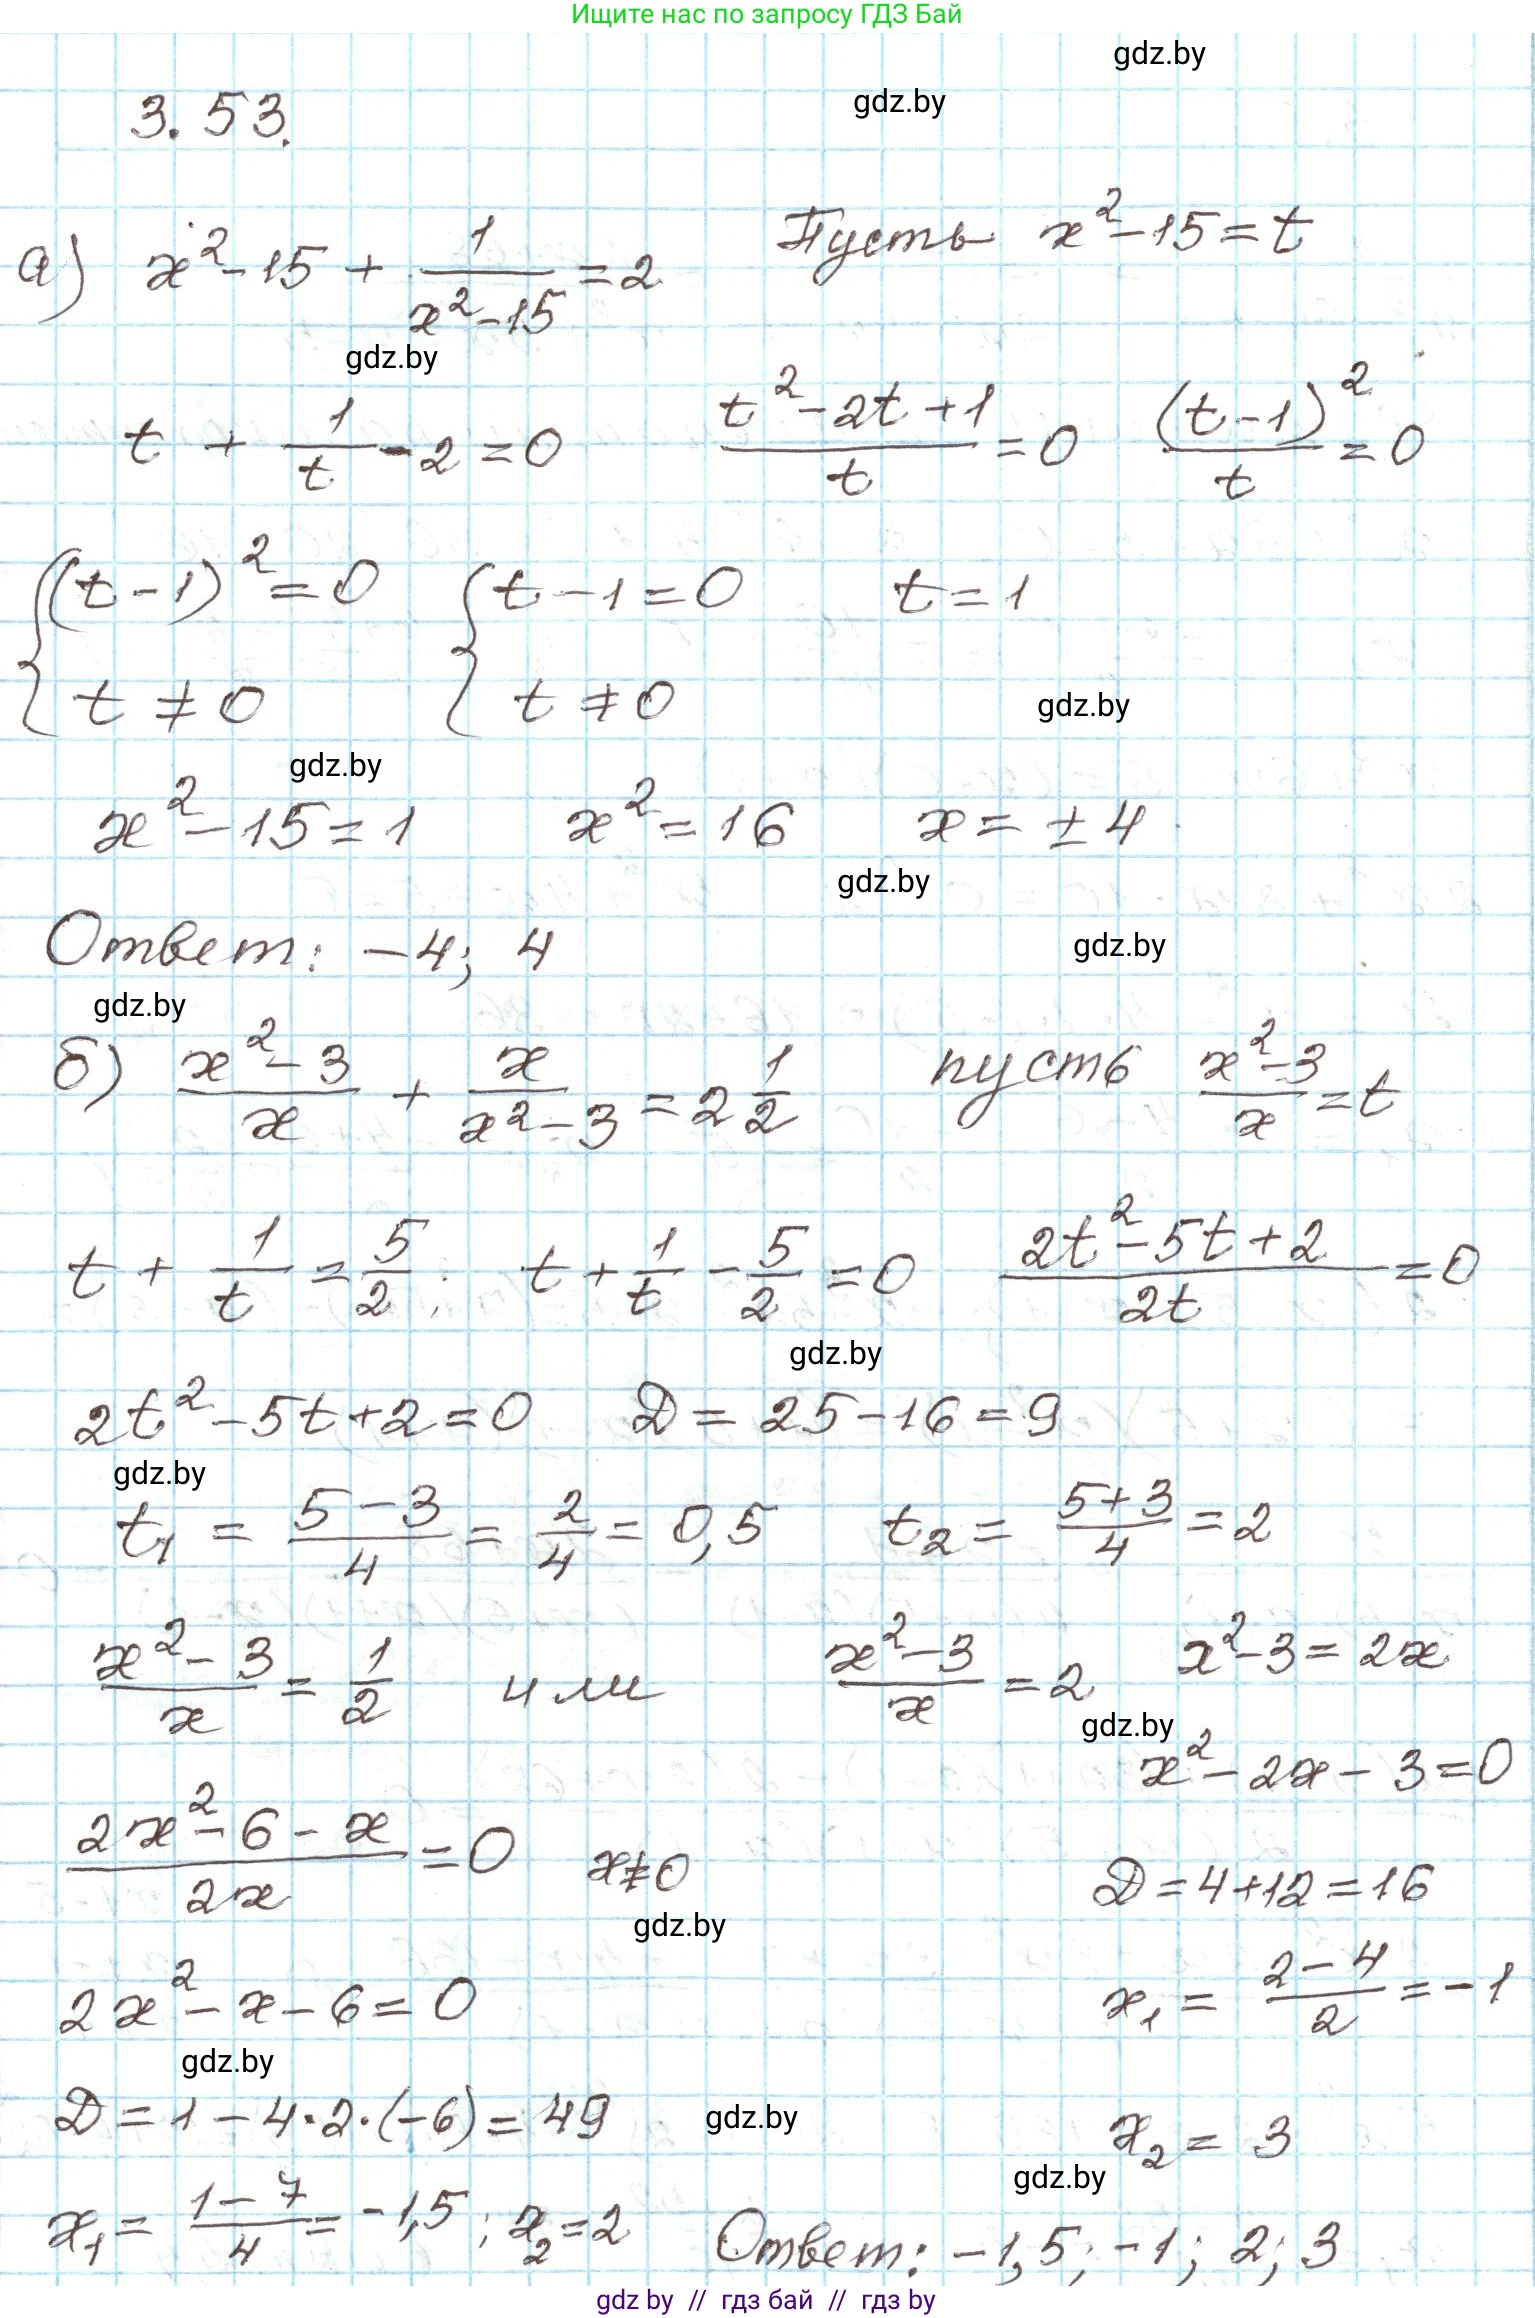 Ищите нас по запросу ГДЗ Бай
gdz.by
gdz.by
3.53.
а) x² - 15 + 1/(x² - 15) = 2   Пусть x² - 15 = t
gdz.by
t + 1/t - 2 = 0   (t² - 2t + 1)/t = 0   (t - 1)²/t = 0
{(t - 1)² = 0   {t - 1 = 0   t = 1
{t ≠ 0   {t ≠ 0
gdz.by
gdz.by
x² - 15 = 1   x² = 16   x = ± 4
gdz.by
Ответ: -4; 4
gdz.by
gdz.by
б) (x² - 3)/x + x/(x² - 3) = 2 1/2   пусть (x² - 3)/x = t
t + 1/t = 5/2;   t + 1/t - 5/2 = 0   (2t² - 5t + 2)/2t = 0
gdz.by
2t² - 5t + 2 = 0   D = 25 - 16 = 9
gdz.by
t₁ = (5 - 3)/4 = 2/4 = 0,5   t₂ = (5 + 3)/4 = 2
(x² - 3)/x = 1/2   или   (x² - 3)/x = 2   x² - 3 = 2x
gdz.by
x² - 2x - 3 = 0
(2x² - 6 - x)/2x = 0   x ≠ 0   D = 4 + 12 = 16
gdz.by
2x² - x - 6 = 0   x₁ = (2 - 4)/2 = -1
gdz.by
D = 1 - 4·2·(-6) = 49   x₂ = 3
gdz.by
gdz.by
x₁ = (1 - 7)/4 = -1,5; x₂ = 2   Ответ: -1,5; -1; 2; 3
gdz by // гдз бай // гдз by